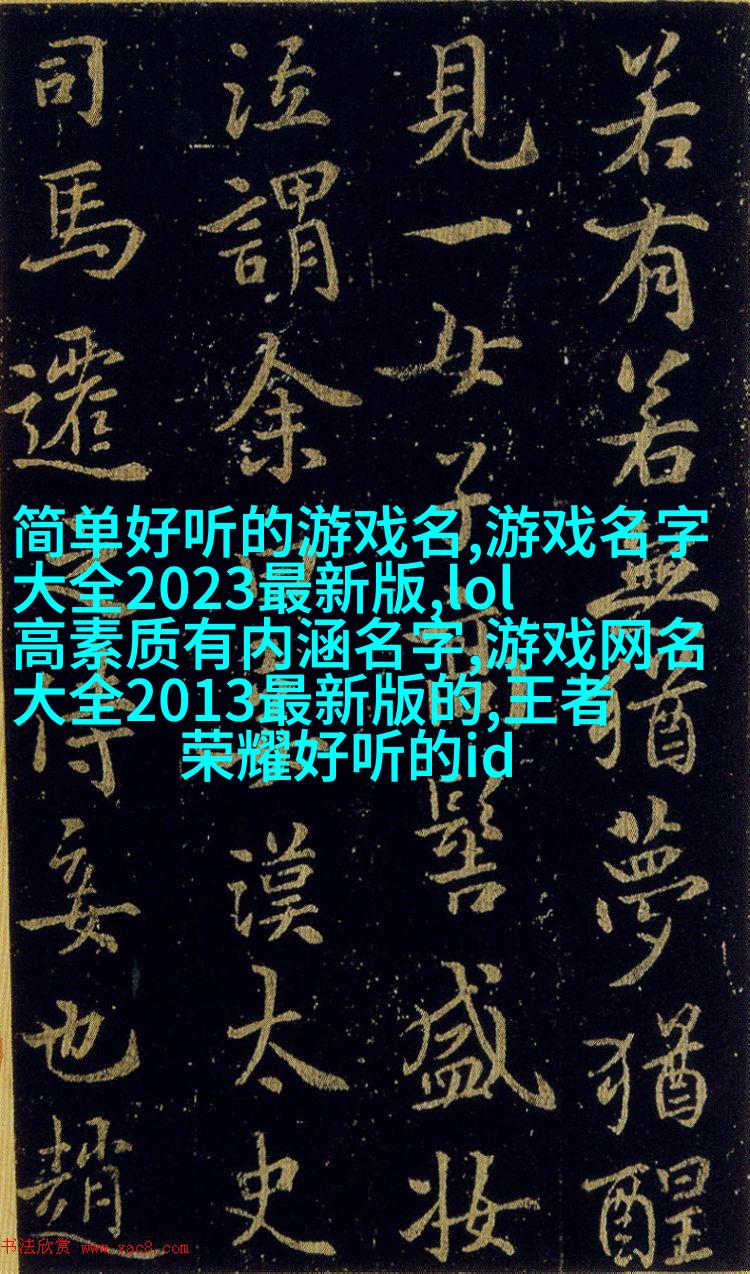 若有若無猶夢猶醒
見一女子高髻盛妝
泣謂余漢太史
司馬遷侍妾也趙
简单好听的游戏名,游戏名字
大全2023最新版,lol
高素质有内涵名字,游戏网名
大全2013最新版的,王者
荣耀好听的id
书法欣赏 www.yac8.com